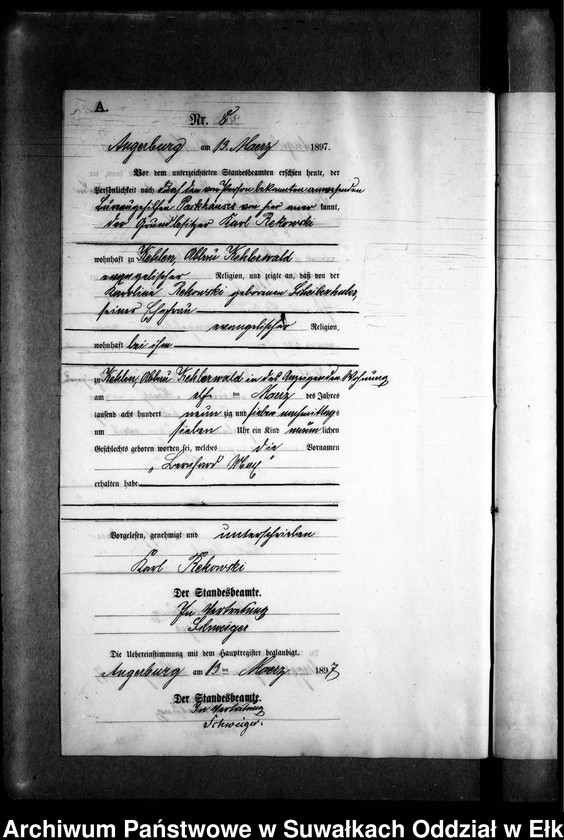 A.
Nr. 8
Angerburg am 13. Maerz 1897.
Vor dem unterzeichneten Standesbeamten erschien heute, der
Persönlichkeit nach durch den von Person bekannten anwesenden
Büreaugehilfen Parkhauser von hier kannt,
der Grundbesitzer Karl Rekowski
wohnhaft zu Kehlen, Abbau Kehlerwald
evangelischer Religion, und zeigte an, daß von der
Karoline Rekowski geborenen
seiner Ehefrau
evangelischer Religion,
wohnhaft bei ihm
zu Kehlen, Abbau Kehlerwald in des Anzeigenden Wohnung
am elf ten Maerz des Jahres
tausend acht hundert neun zig und sieben nachmittags
um sieben Uhr ein Kind männlichen
Geschlechts geboren worden sei, welches die Vornamen
„Bernhard Max“
erhalten habe.
Vorgelesen, genehmigt und unterschrieben
Karl Rekowski
Der Standesbeamte.
In Vertretung
Schweiger
Die Uebereinstimmung mit dem Hauptregister beglaubigt.
Angerburg am 13 ten Maerz 1897
Der Standesbeamte.
In Vertretung
Schweiger.
Archiwum Państwowe w Suwałkach Oddział w Ełk